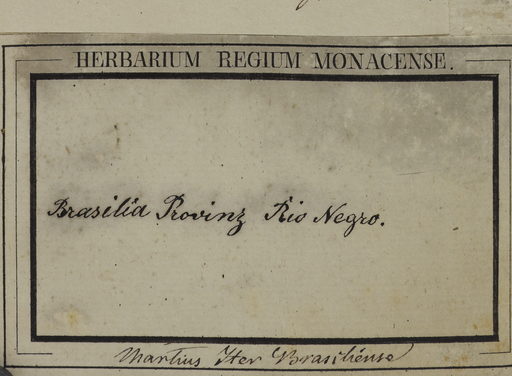 HERBARIUM REGIUM MONACENSE.
Brasilia Provinz Rio Negro.
Martius Iter Brasiliense